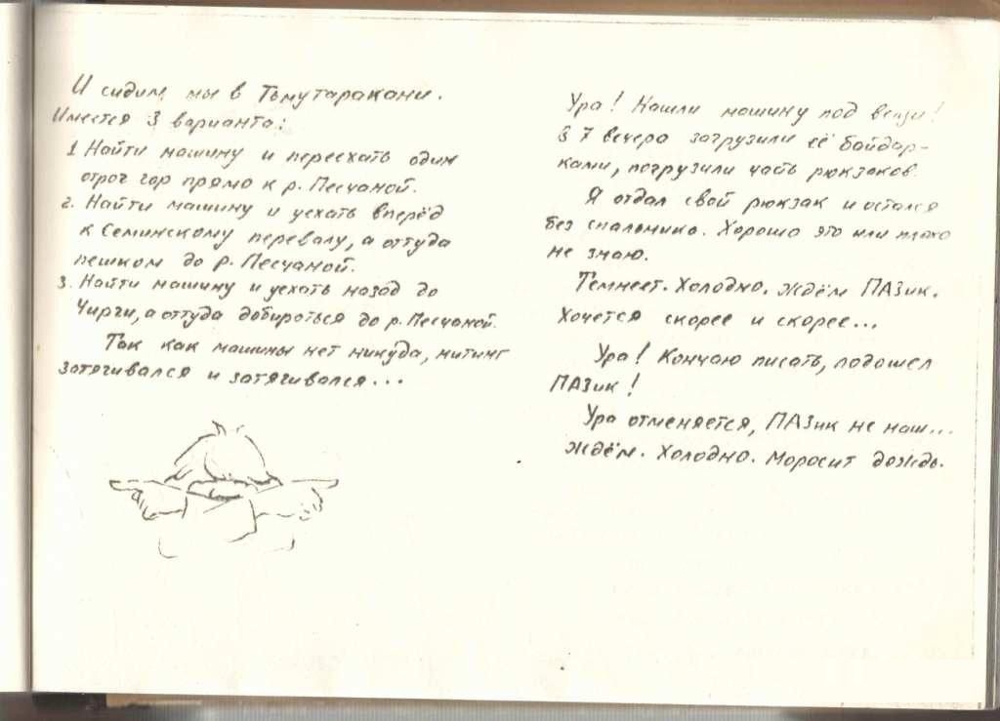 И сидим мы в Тьмутаракани.
Имеется 3 варианта:
1 Найти машину и переехать один
отрог гор прямо к р. Песчаной.
2. Найти машину и уехать вперёд
к Семинскому перевалу, а оттуда
пешком до р. Песчаной.
3. Найти машину и уехать назад до
Чирги, а оттуда добираться до р. Песчаной.
Так как машины нет никуда, митинг
затягивался и затягивался...
Ура! Нашли машину под вещи!
В 7 вечера загрузили её байдар-
ками, погрузили часть рюкзаков.
Я отдал свой рюкзак и остался
без спальника. Хорошо это или плохо
не знаю.
Темнеет. Холодно. Ждём ПАЗик.
Хочется скорее и скорее...
Ура! Кончаю писать, подошел
ПАЗик!
Ура отменяется, ПАЗик не наш...
Ждём. Холодно. Моросит дождь.